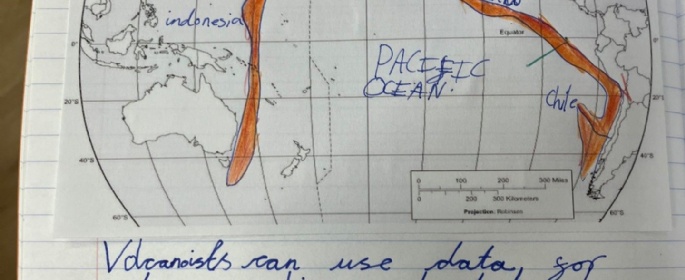 indonesia
Equator
0°
0°
PACIFIC
OCEAN.
Chile
20°S
20°S
40°S
40°S
0 100 200 300 Miles
0 200 300 Kilometers
Projection: Robinson
60°S
60°S
Volcanoists can use data, for